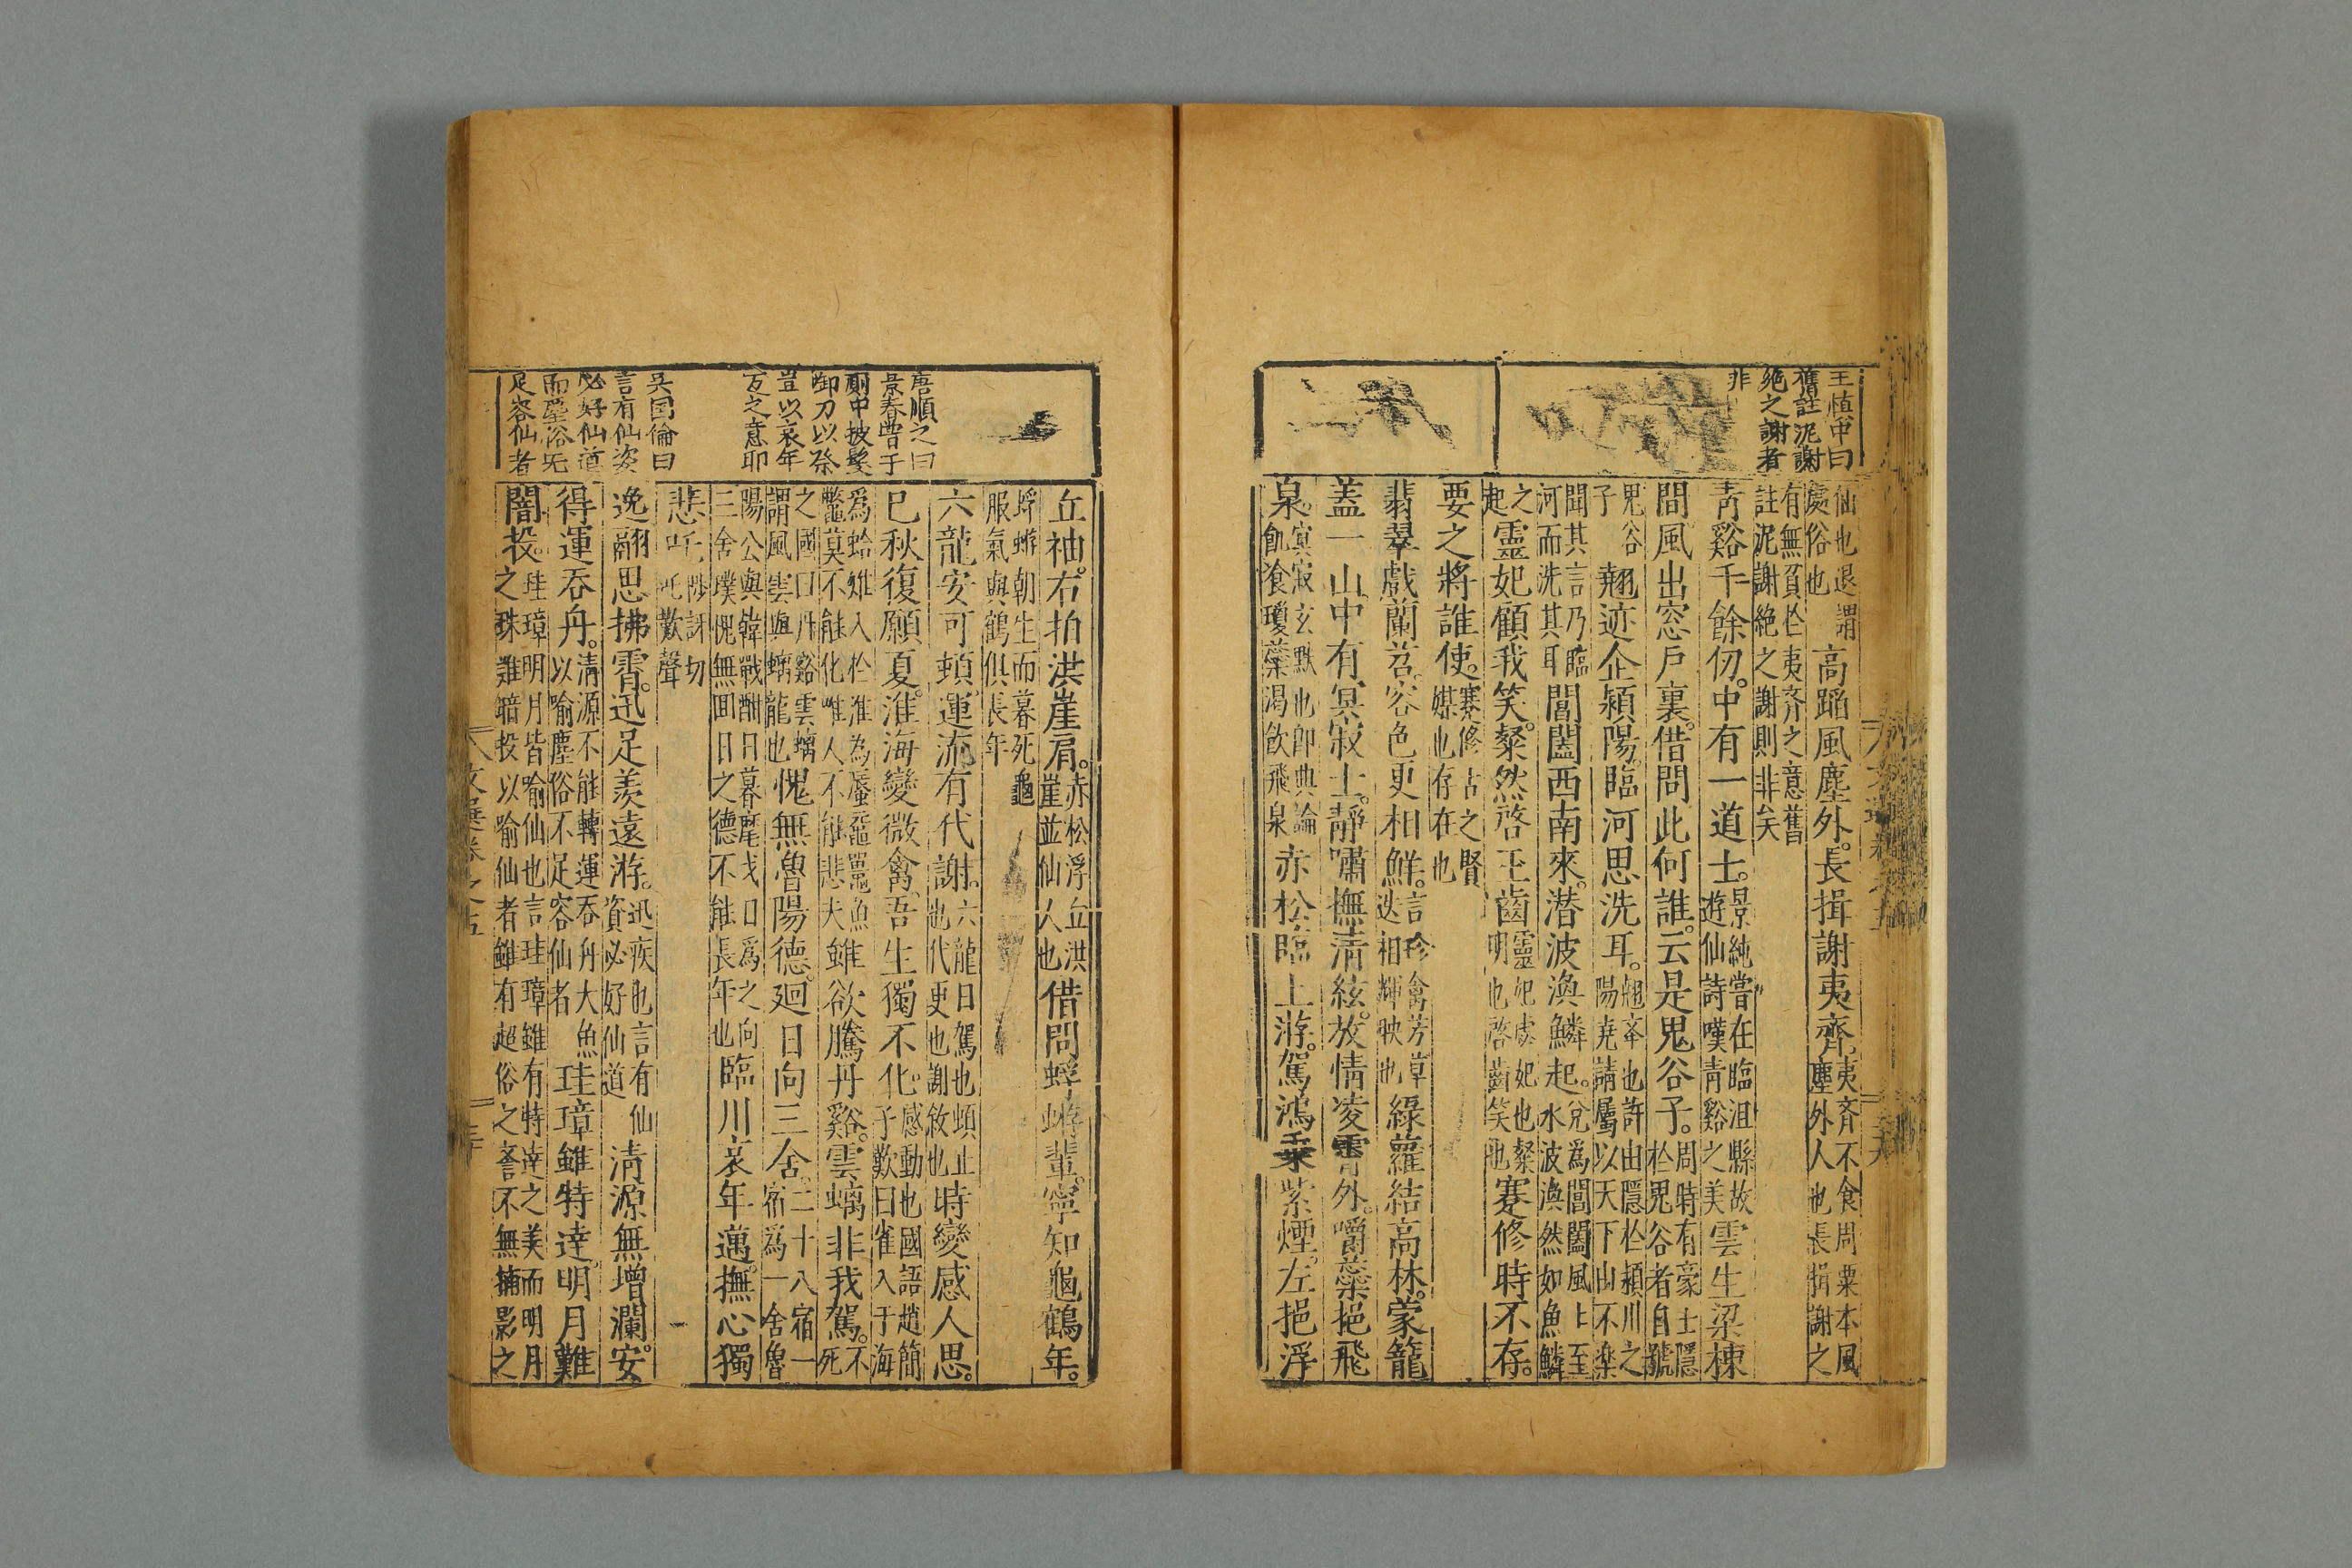 王慎中曰
舊註泥謝
絶之謝者
非
仙也退謂
處俗也
高蹈風塵外。長揖謝夷齊。
夷齊不食周粟本風
塵外人也長揖謝之
有無貧於夷齊之意舊
註泥謝絶之謝則非矣
靑谿千餘仞。中有一道士。
景純嘗在臨沮縣故
遊仙詩嘆青谿之美
雲生梁棟
間風出窓戶裏。借問此何誰。云是鬼谷子。
周時有豪士隱
於鬼谷者自號
鬼谷
子
翹迹企潁陽。臨河思洗耳。
翹企也許由隱於潁川之
陽堯請屬以天下山不樂
聞其言乃臨
河而洗其耳
閶闔西南來。潛波渙鱗起。
兌爲閶闔風上至
水波渙然如魚鱗
之
起
靈妃顧我笑。粲然啓玉齒
靈妃虙妃也粲
明也啓齒笑也
蹇修時不存。
要之將誰使。
蹇修古之賢
媒也存在也
翡翠戲蘭苕。容色更相鮮。
言珍禽芳草
迭相輝映也
綠蘿結高林。蒙籠
蓋一山。中有冥寂士。靜嘯撫淸絃。放情凌霄外。嚼蘂挹飛
泉。
冥寂玄默也卽典論
飢飡瓊蘂渴飲飛泉
赤松臨上游。駕鴻乘紫煙。左挹浮
丘袖。右拍洪崖肩。
赤松浮丘洪
崖並仙人也
借問蜉蝣輩。寧知龜鶴年。
蜉蝣朝生而暮死龜
服氣與鶴俱長年
六龍安可頓。運流有代謝。
六龍日駕也頓止
也代更也謝敘也
時變感人思。
已秋復願夏。淮海變微禽。吾生獨不化。
感動也國語趙簡
子歎曰雀入于海
爲蛤雉入於淮為蜃黿鼉魚
鱉莫不能化唯人不能悲夫
雖欲騰丹谿。雲螭非我駕。
不
死
之國曰丹谿雲螭
謂風雲與螭龍也
愧無魯陽德。廻日向三舍。
二十八宿一
宿爲一舍魯
陽公與韓戰酣日暮麾戈日爲之向
三舍璞愧無回日之德不能長年也
臨川哀年邁。撫心獨
悲吒
陟訝切
吒歎聲
逸翮思拂霄。迅足羨遠游。
迅疾也言有仙
資必好仙道
淸源無增瀾。安
得運吞舟。
淸源不能轉運吞舟大魚
以喻塵俗不足容仙者
珪璋雖特達。明月難
闇投。
珪璋明月皆喻仙也言珪璋雖有特達之美而明月
之珠難暗投以喻仙者雖有超俗之譽不無捕影之
唐順之曰
景春曹子
厠中披髮
御刀以祭
豈以哀年
亙之意耶
吳国倫曰
言有仙姿
必好仙道
而塵俗旡
足容仙者
文選卷之五